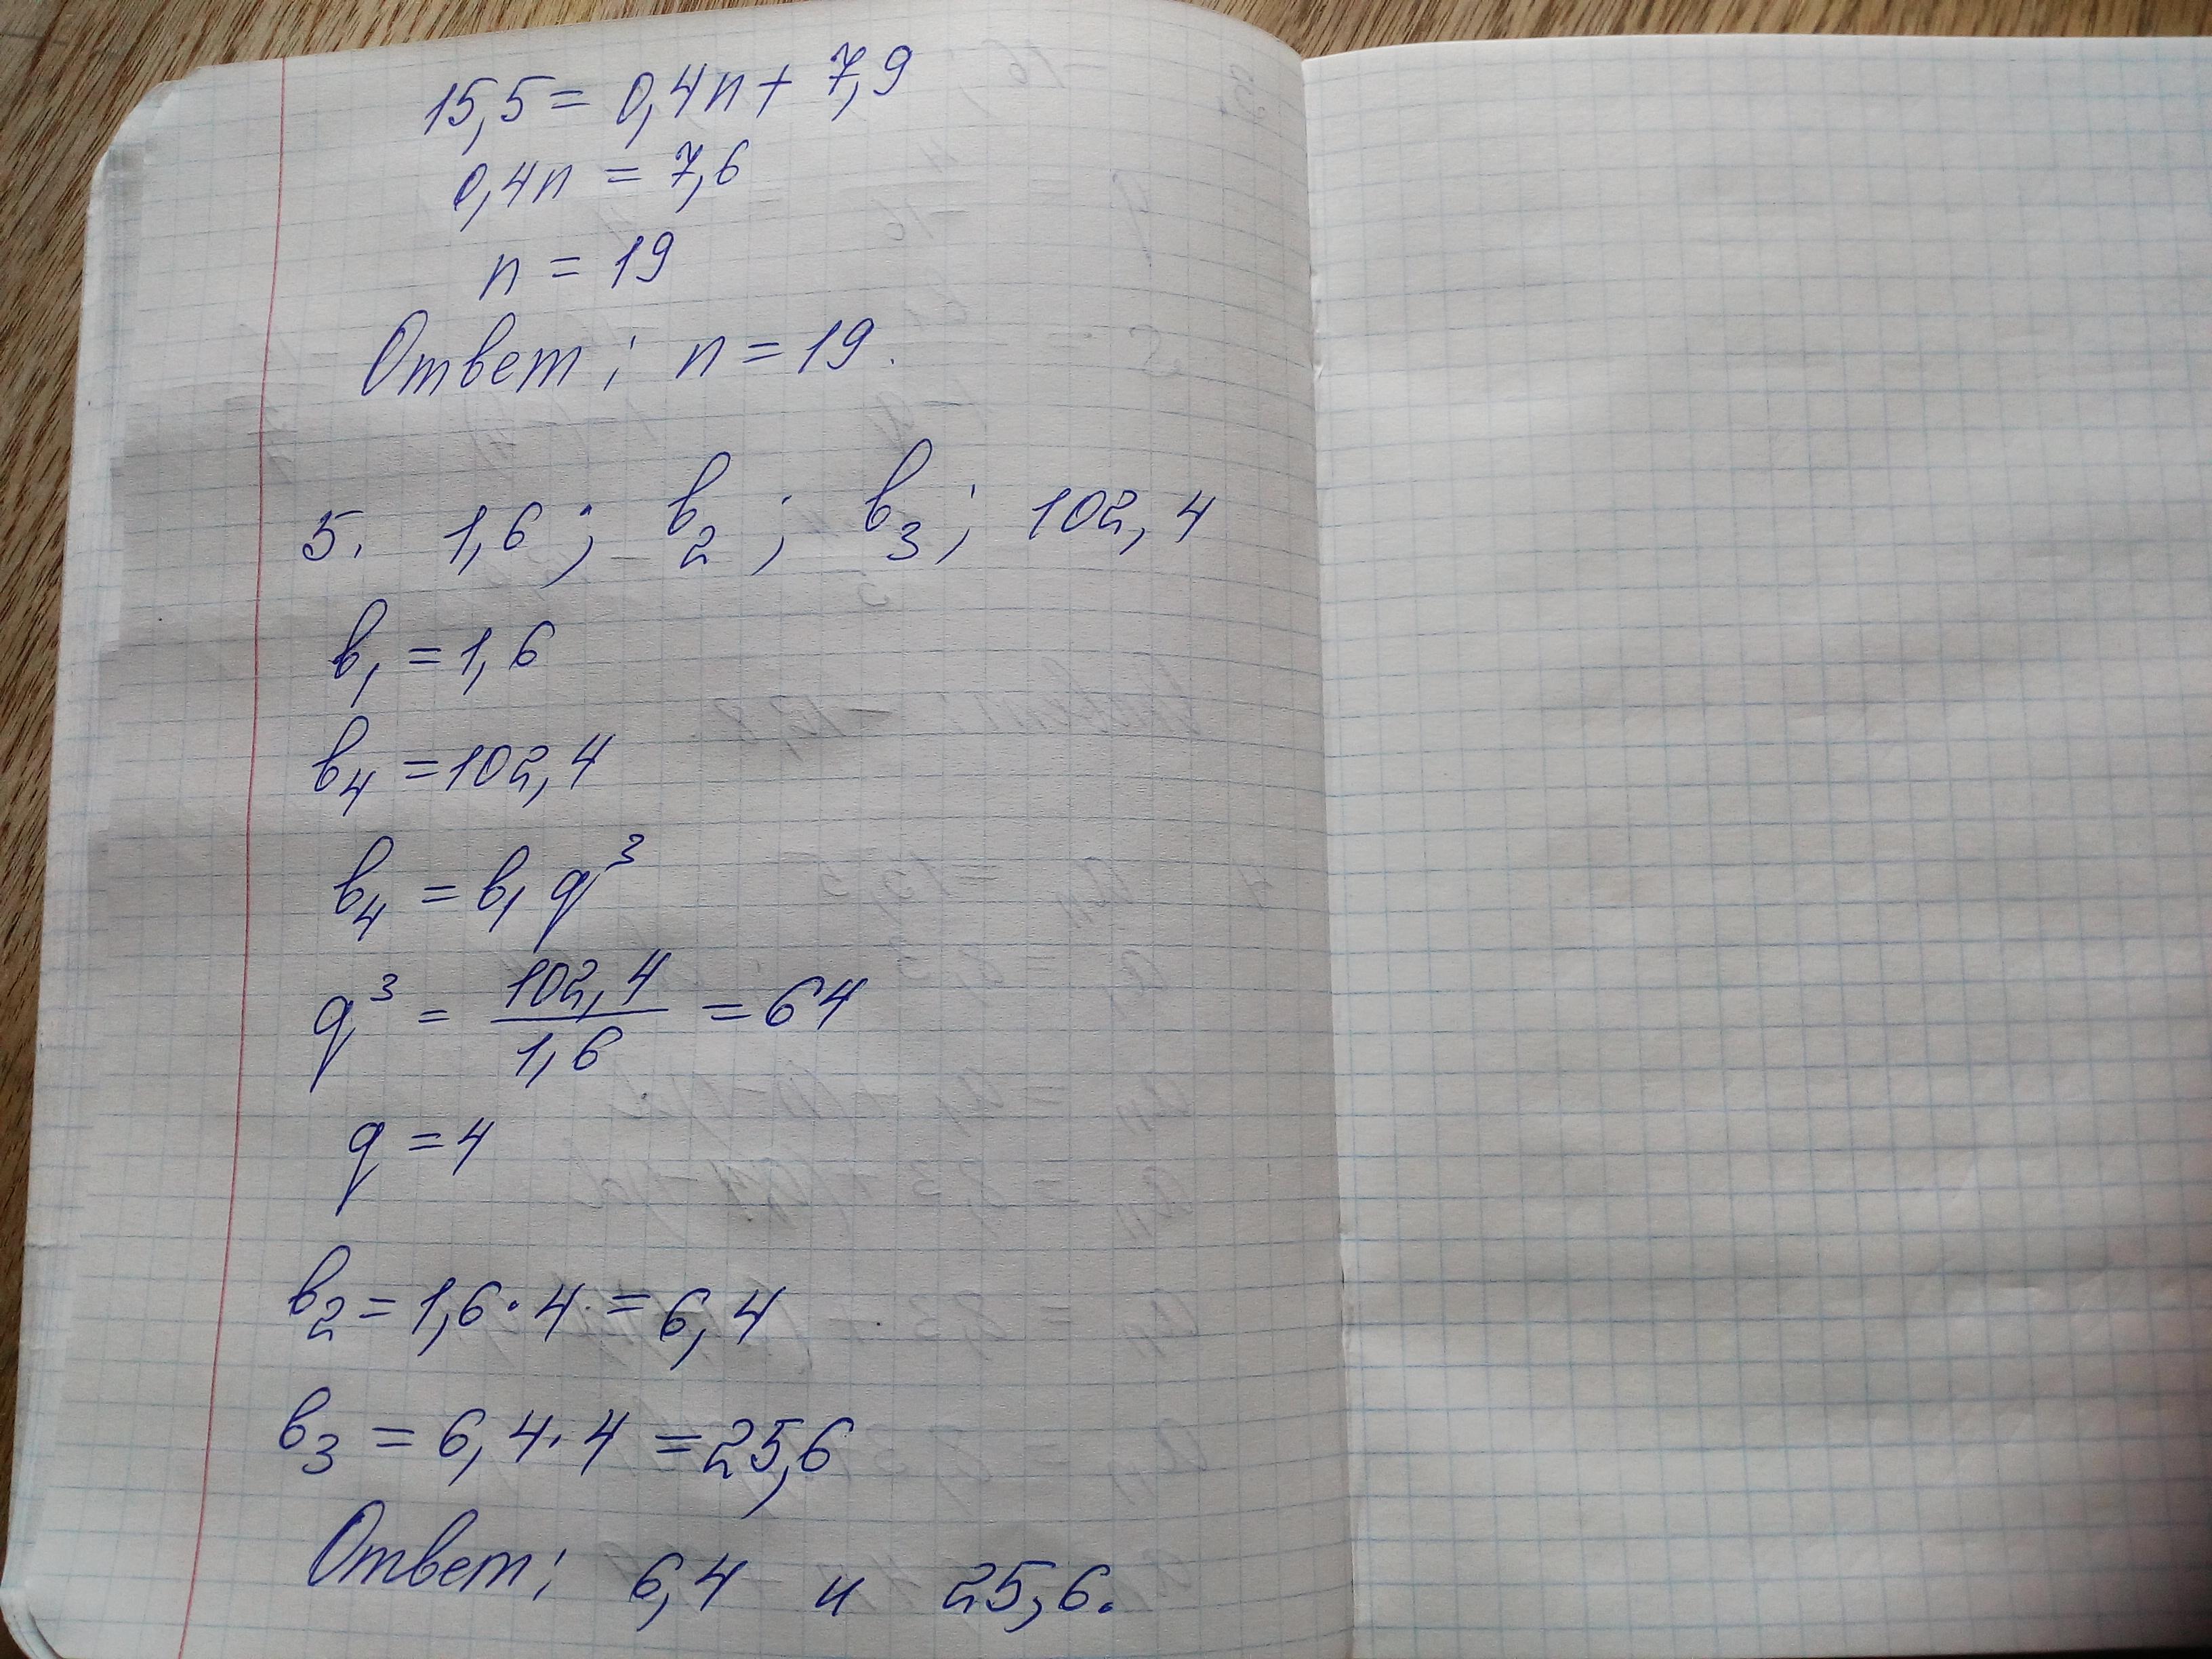 15,5 = 0,4n + 7,9
0,4n = 7,6
n = 19
Ответ: n = 19.
5. 1,6; b₂; b₃; 102,4
b₁ = 1,6
b₄ = 102,4
b₄ = b₁ q³
q³ = 102,4/1,6 = 64
q = 4
b₂ = 1,6 · 4 = 6,4
b₃ = 6,4 · 4 = 25,6
Ответ: 6,4 и 25,6.